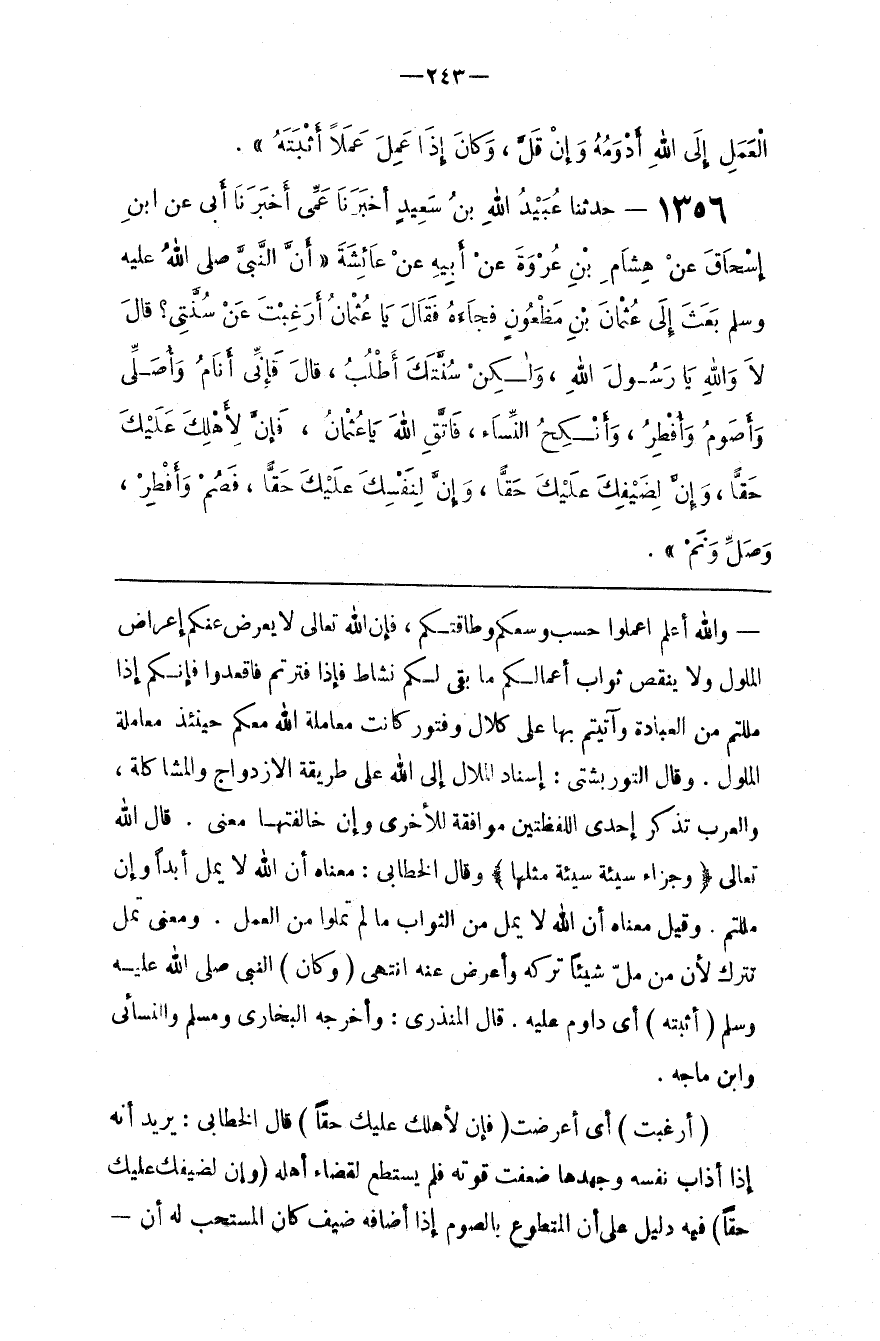 —٢٤٣—
الْعَمَلِ إِلَى اللهِ أَدْوَمُهُ وَإِنْ قَلَّ ، وَكَانَ إِذَا عَمِلَ عَمَلاً أَثْبَتَهُ » .
١٣٥٦ — حدثنا عُبَيْدُ اللهِ بنُ سَعِيدٍ أخبَرَنَا عَمِّى أَخْبَرَنَا أَبى عن ابنِ
إسْحَاقَ عنْ هِشَامِ بْنِ عُرْوَةَ عنْ أَبِيهِ عنْ عَائِشَةَ « أَنَّ النَّبىَّ صلى اللهُ عليه
وسلم بَعَثَ إِلَى عُثْمَانَ بْنِ مَظْعُونٍ فجاءَهُ فَقَالَ يَا عُثْمَانُ أَرَغِبْتَ عَنْ سُنَّتِى؟ قالَ
لاَ وَاللهِ يَا رَسُولَ اللهِ ، وَلٰكِنْ سُنَّتَكَ أَطْلُبُ ، قالَ فَإِنِّى أَنَامُ وَأُصَلِّى
وَأَصُومُ وَأُفْطِرُ ، وَأَنْكِحُ النِّسَاء ، فَاتَّقِ اللهَ يَاعُثْمَانُ ، فَإِنَّ لِأَهْلِكَ عَلَيْكَ
حَقًّا ، وَإِنَّ لِضَيْفِكَ عَلَيْكَ حَقًّا ، وَإِنَّ لِنَفْسِكَ عَلَيْكَ حَقًّا ، فَصُمْ وَأَفْطِرْ ،
وَصَلِّ وَنَمْ » .
— والله أعلم اعملوا حسب وسعكم وطاقتكم ، فإن الله تعالى لا يعرض عنكم إعراض
الملول ولا ينقص ثواب أعمالكم ما بقى لكم نشاط فإذا فترتم فاقعدوا فإنكم إذا
مللتم من العبادة وآتيتم بها على كلال وفتور كانت معاملة الله معكم حينئذ معاملة
الملول . وقال التوربشتى : إسناد الملال إلى الله على طريقة الازدواج والمشاكلة ،
والعرب تذكر إحدى اللفظتين موافقة للأخرى وإن خالفتها معنى . قال الله
تعالى ﴿ وجزاء سيئة سيئة مثلها ﴾ وقال الخطابى : معناه أن الله لا يمل أبداً وإن
مللتم . وقيل معناه أن الله لا يمل من الثواب ما لم تملوا من العمل . ومعنى تمل
تترك لأن من ملّ شيئاً تركه وأعرض عنه انتهى ( وكان ) النبى صلى الله عليه
وسلم ( أثبته ) أى داوم عليه . قال المنذرى : وأخرجه البخارى ومسلم والنسائى
وابن ماجه .
( أرغبت ) أى أعرضت ( فإن لأهلك عليك حقاً ) قال الخطابى : يريد أنه
إذا أذاب نفسه وجهدها ضعفت قوته فلم يستطع لقضاء أهله (وإن لضيفك عليك
حقاً) فيه دليل على أن المتطوع بالصوم إذا أضافه ضيف كان المستحب له أن —